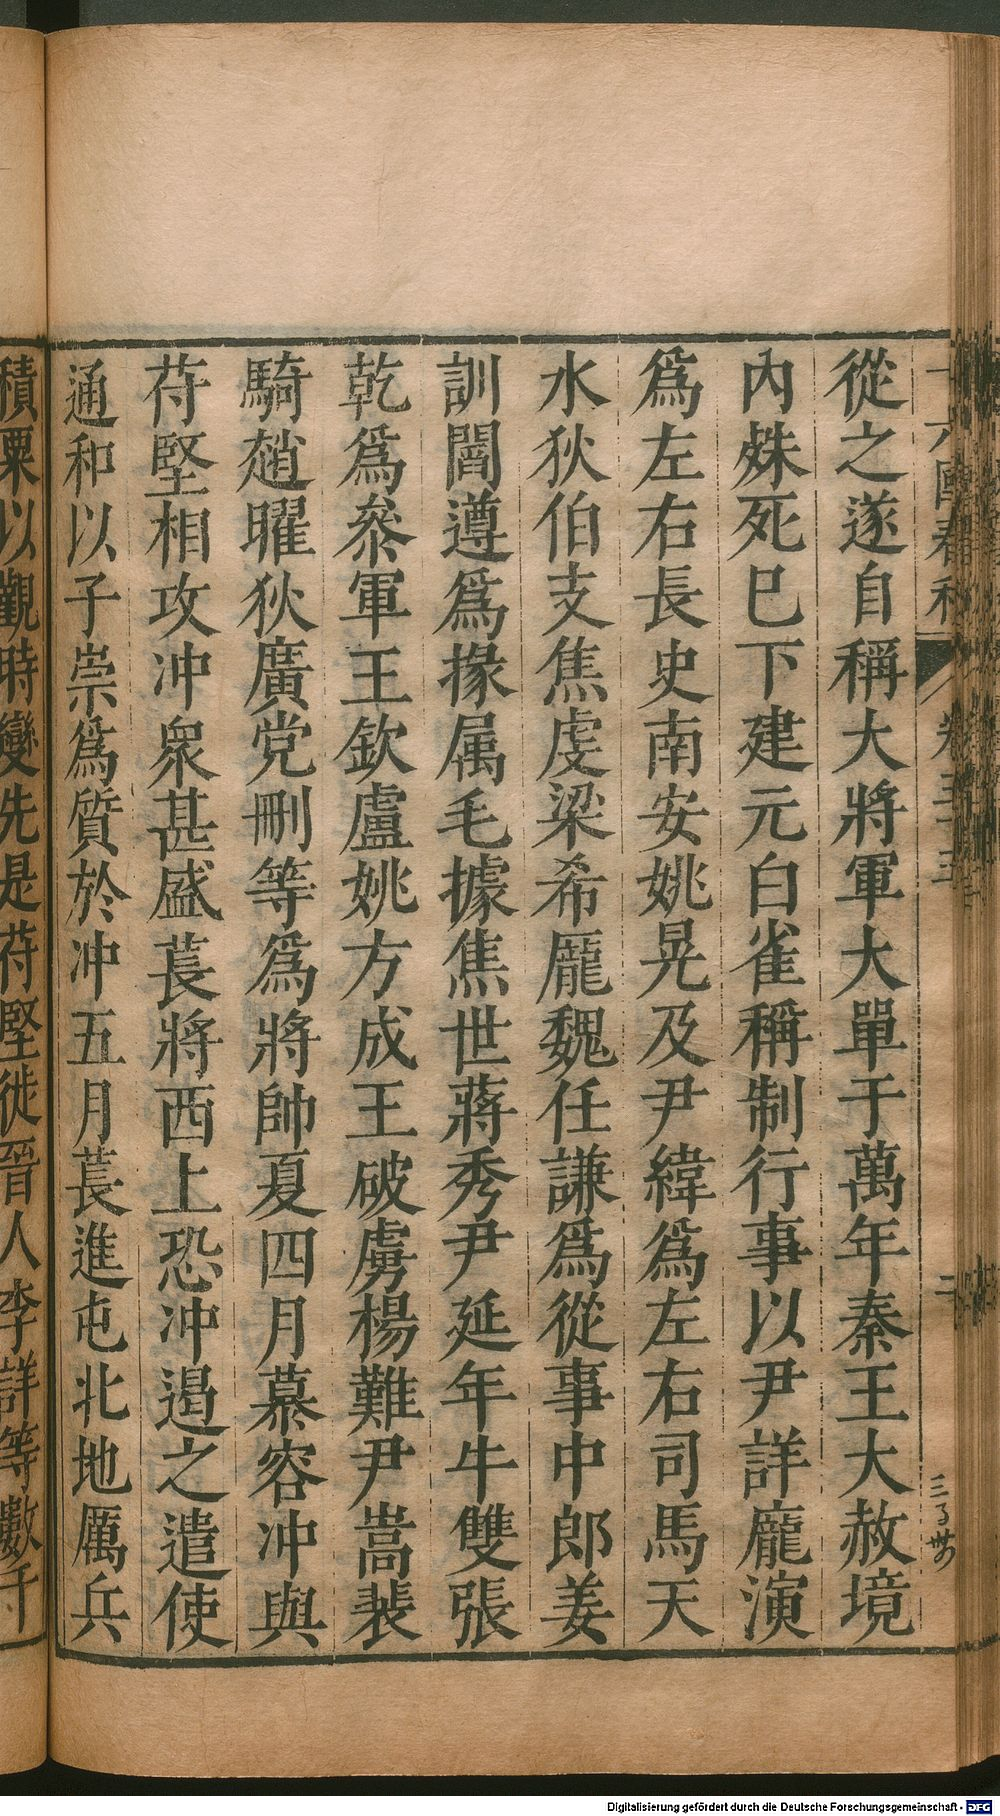 從之遂自稱大將軍大單于萬年秦王大赦境
內姝死巳下建元白雀稱制行事以尹詳龐演
爲左右長史南安姚晃及尹緯爲左右司馬天
水狄伯支焦虔梁希龐魏任謙爲從事中郎姜
訓閻遵爲掾属毛據焦世蔣秀尹延年牛雙張
乾爲叅軍王欽盧姚方成王破虜楊難尹嵩裴
騎趙曜狄廣党刪等爲將帥夏四月慕容沖與
苻堅相攻沖衆甚盛萇將西上恐沖遏之遣使
通和以子崇爲質於沖五月萇進屯北地厲兵
積粟以觀時變先是苻堅徙晉人李詳等數千
Digitalisierung gefördert durch die Deutsche Forschungsgemeinschaft - DFG